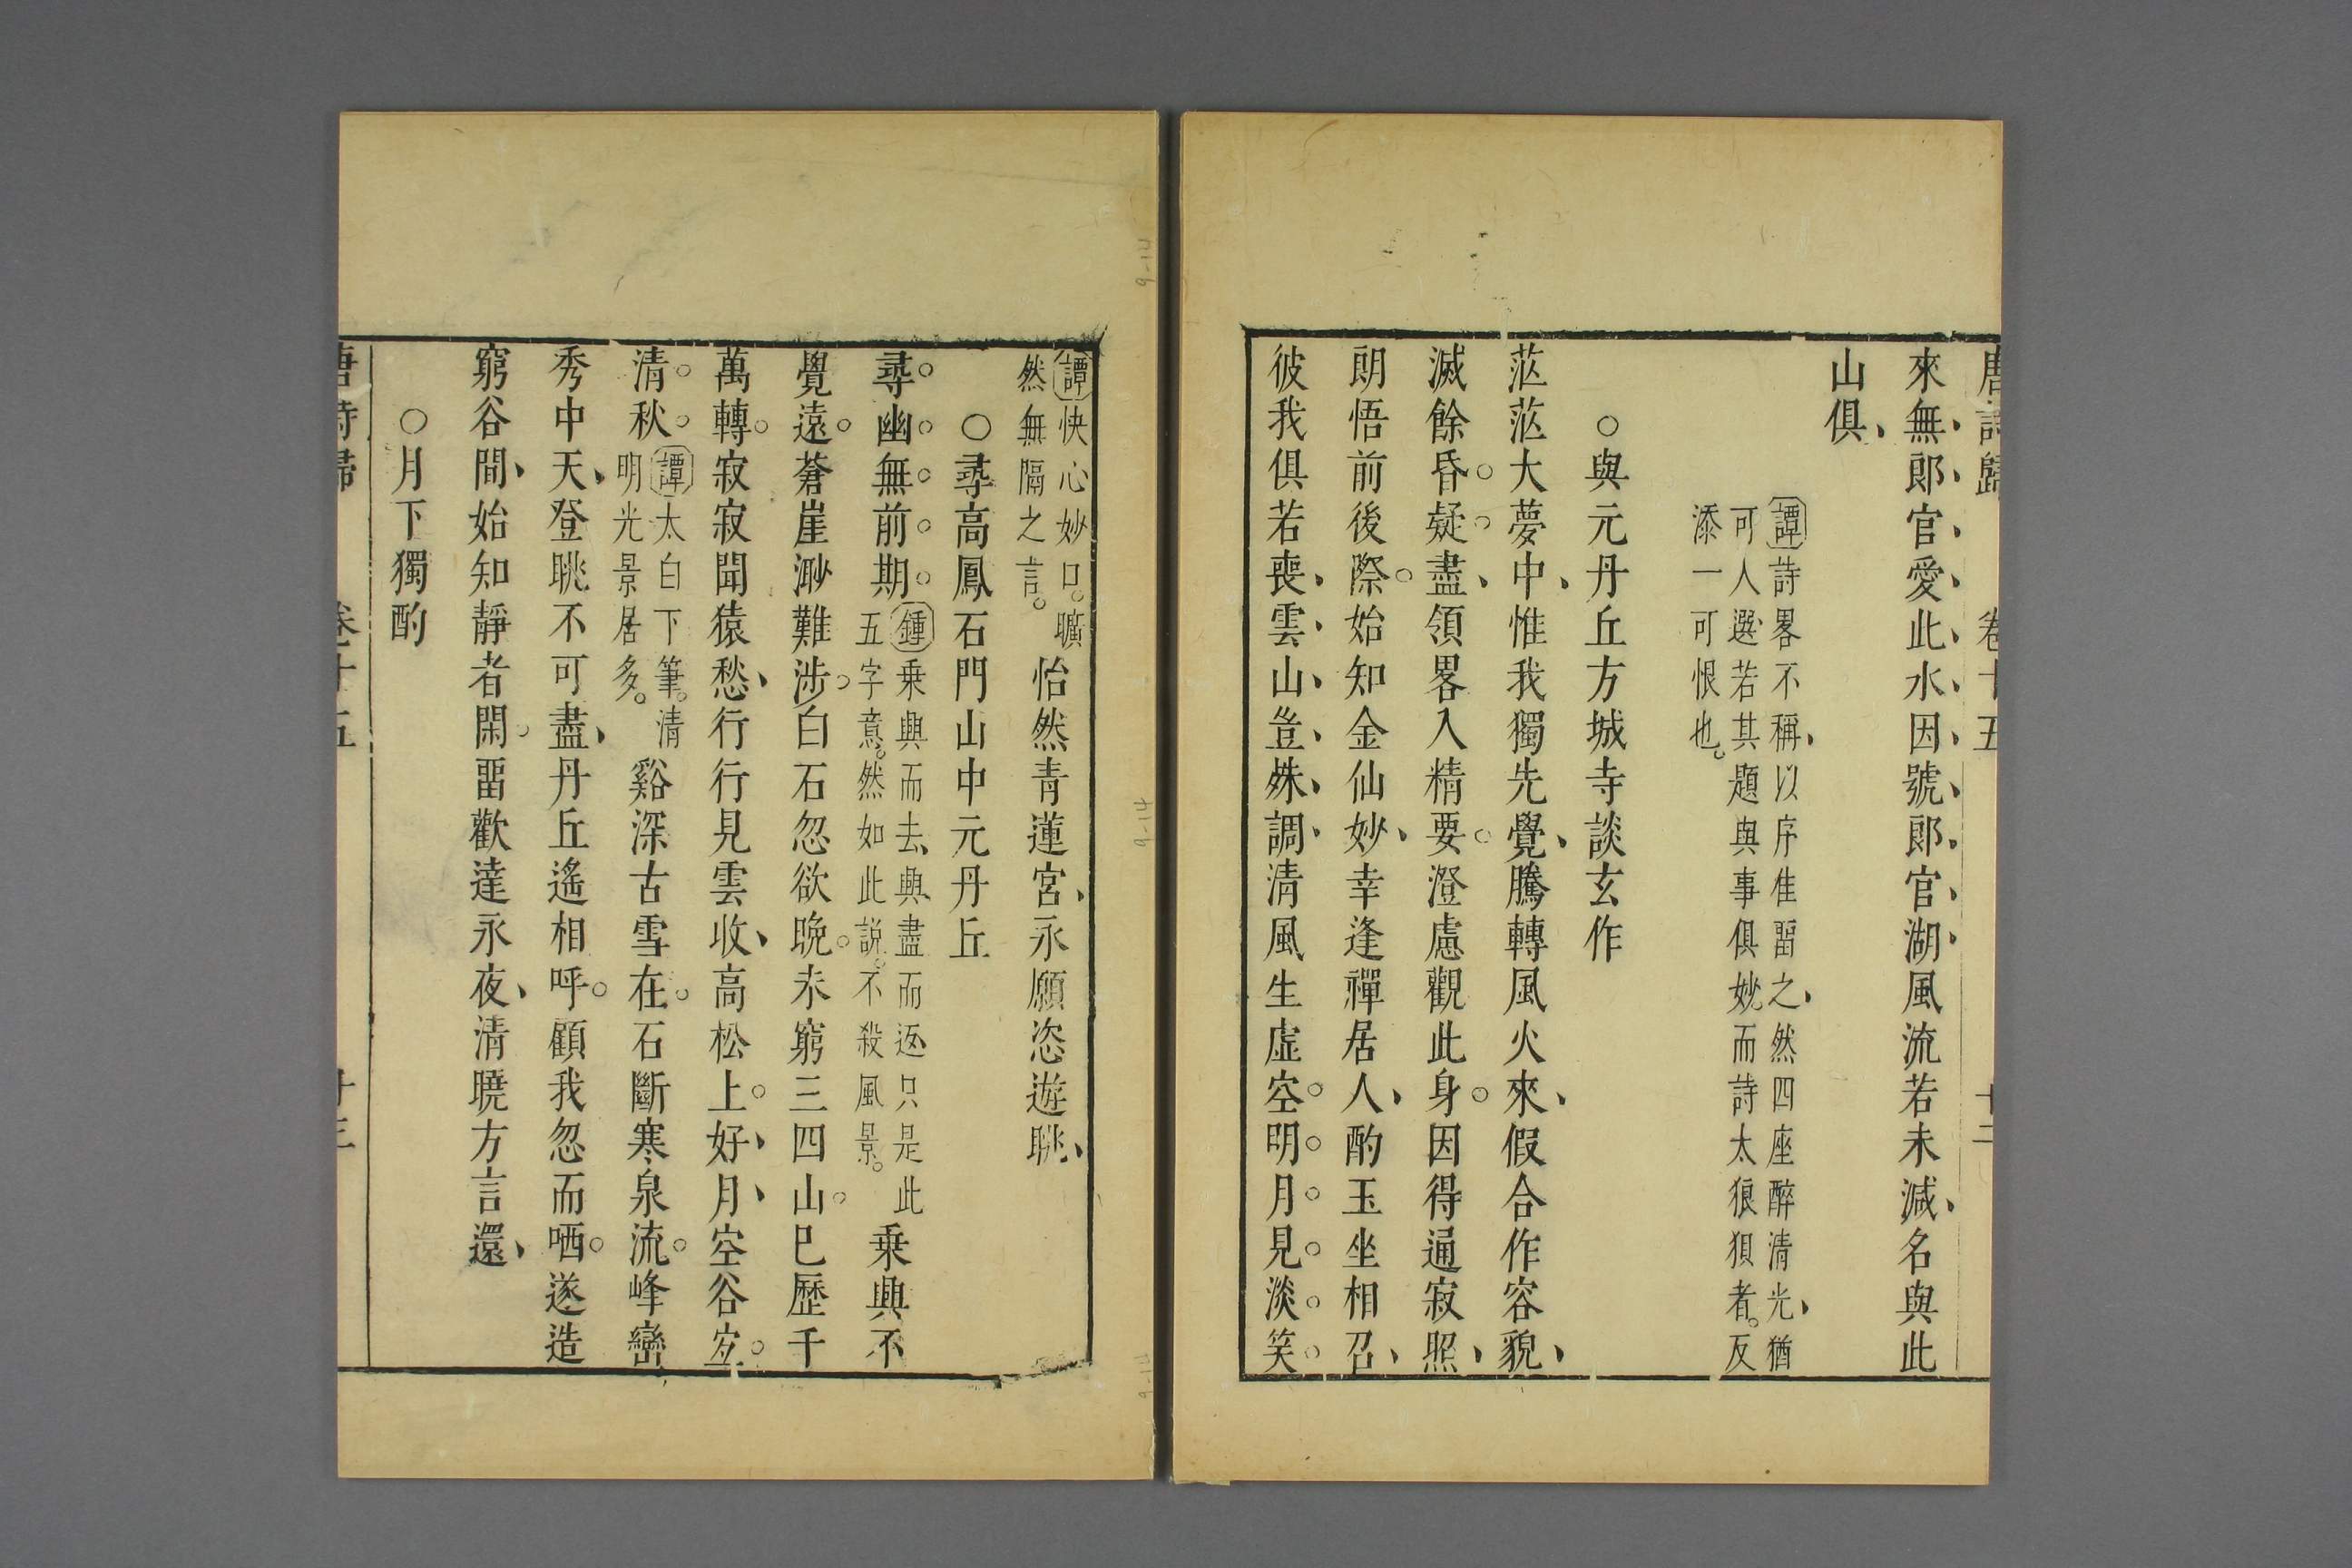 唐詩歸 卷十五 十二
來無郎官愛此水因號郎官湖風流若未減名與此
山俱
譚詩畧不稱以序佳畱之然四座醉清光猶
可人選若其題與事俱妙而詩太狼狽者。反
添一可恨也。
○與元丹丘方城寺談玄作
茫茫大夢中惟我獨先覺騰轉風火來假合作容貌
滅餘昏疑盡領畧入精要澄慮觀此身因得通寂照
朗悟前後際始知金仙妙幸逢禪居人酌玉坐相召
彼我俱若喪雲山豈殊調清風生虛空明月見淡笑
譚快心妙口。曠
然無隔之言。
怡然青蓮宮永願恣遊眺
○尋高鳳石門山中元丹丘
尋幽無前期
鍾乗興而去興盡而返只是此
五字意。然如此説。不殺風景。
乗興不
覺遠蒼崖渺難涉白石忽欲晚未窮三四山巳歷千
萬轉寂寂聞猿愁行行見雲收高松上好月空谷宐
清秋
譚太白下筆。清
明光景居多。
谿深古雪在石斷寒泉流峰巒
秀中天登眺不可盡丹丘遙相呼顧我忽而哂遂造
窮谷間始知靜者閑畱歡達永夜清曉方言還
○月下獨酌
唐詩歸 卷十五 十三